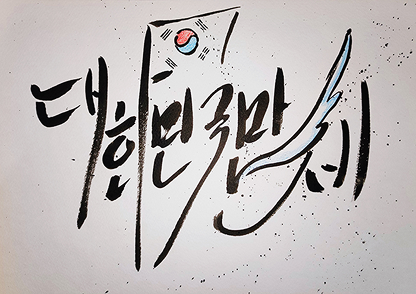 대한민국만세